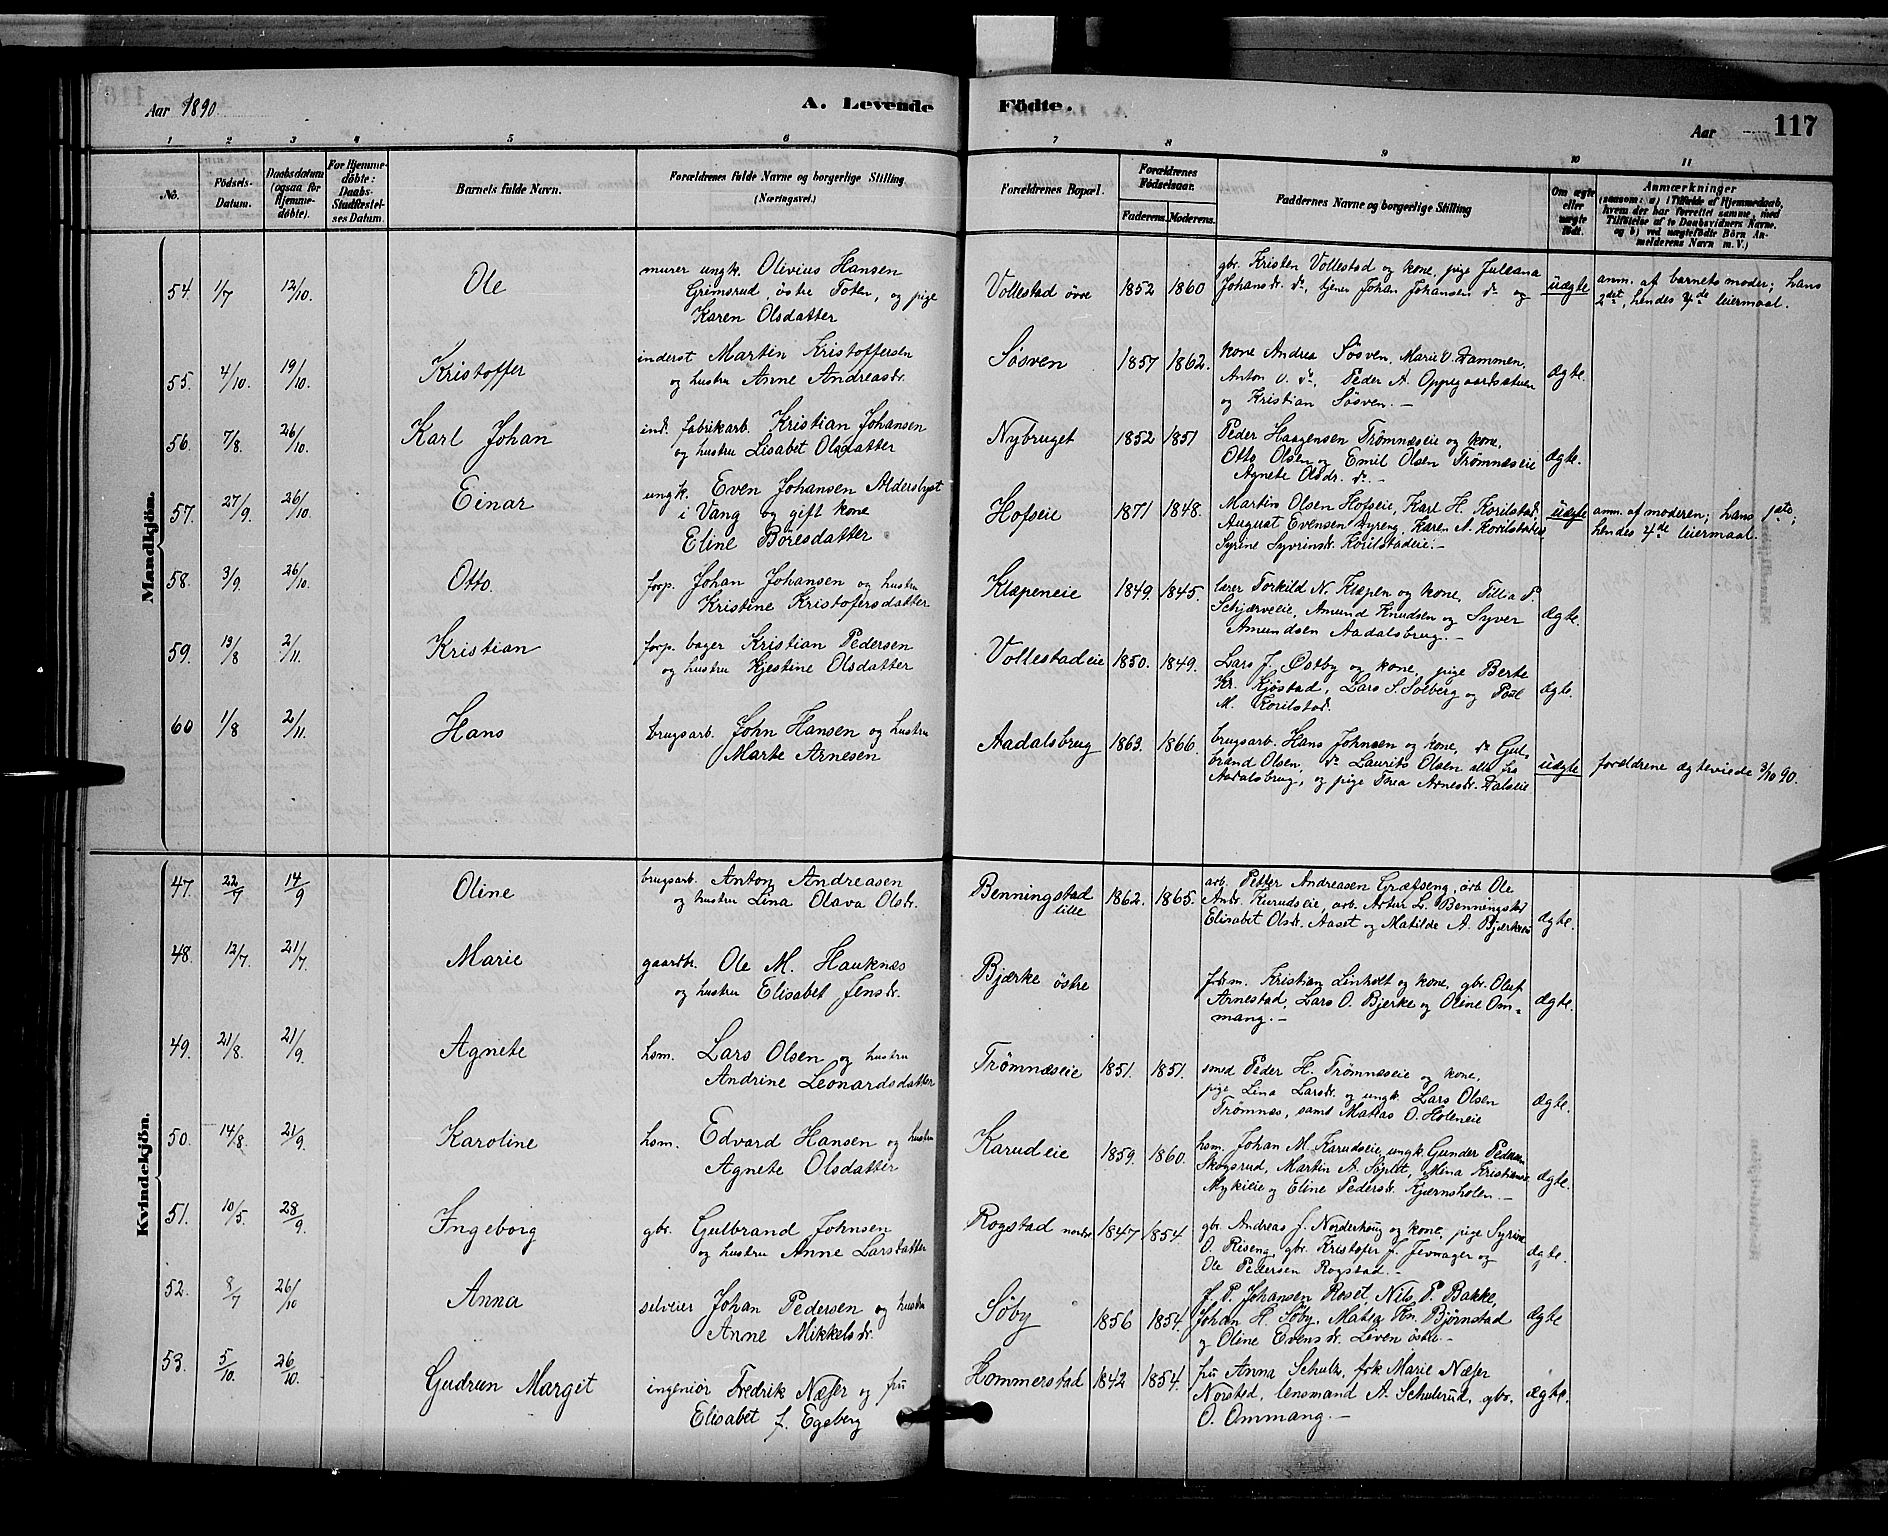 Aar 1890. A. Levende Födte. Aar 117
1 2 3 4 5 6 7 8 9 10 11
No.
Födsels-Datum.
Daabsdatum (ogsaa for Hjemme-döbte).
For Hjemme-döbte: Daabs-Stadfæstel-ses Datum.
Barnets fulde Navn.
Forældrenes fulde Navne og borgerlige Stilling (Næringsvei.)
Forældrenes Bopæl.
Forældrenes Födselsaar.
Faderens. Moderens.
Faddernes Navne og borgerlige Stilling
Om ægte eller uægte født.
Anmærkninger
(saasom: a) i Tilfælde af Hjemmedaab,
hvem der har forrettet samme, med
Tilføielse af to Daabsvidners Navne.
og b) ved uægtefødte Börn An-
melderens Navn m. V.)
Mandkjön.
54. 1/7 12/10. Ole
murer ungk. Olivius Hansen
Grimsrud, östre Toten, og pige
Karen Olsdatter
Vollestad övre 1852 1860
gbr. Kristen Vollestad og kone, pige Juleana
Johansdr. do, tjener Johan Johansen do og
uægte
anm. af barnets moder; hans
2det, hendes 4de leiermaal.
55. 4/10. 19/10. Kristoffer
inderst Martin Kristoffersen
og hustru Anne Andreasdr.
Søsven 1857 1862.
kone Andrea Søsven, Marie O. Dammen,
Anton O. do, Peder A. Oppegaardsstuen
og Kristian Søsven.—
Ægte.
56. 7/8. 26/10. Karl Johan
ind. fabrikarb. Kristian Johansen
og hustru Lisabet Olsdatter
Nybruget 1852 1851
Peder Haagensen Trömnæseie og kone,
Otto Olsen og Emil Olsen Trömnæseie
Agnete Olsdr. do.—
Ægte.
57. 27/9. 26/10. Einar
ungk. Even Johansen Alderslyst
i Vang og gift kone
Eline Boresdatter
Hofseie 1871 1848.
Martin Olsen Hofseie, Karl H. Korilstad,
August Evensen Dyreng, Karen N. Korilstadeie
Syrine Syvrinsdr. Korilstadeie.—
uægte
anm. af moderen; hans 1ste,
hendes 4de leiermaal.
58. 3/9. 26/10. Otto.
forp. Johan Johansen og hustru
Kristine Kristofersdatter
Klæpeneie 1849. 1845.
lærer Torkild N. Klæpen og kone, Tilla P.
Schjærveeie, Amund Knudsen og Syver
Amundsen Aadalsbrug.—
Ægte.
59. 13/8 2/11. Kristian
forp. bager Kristian Pedersen
og hustru Kjestine Olsdatter
Vollestadeie 1850. 1849.
Lars J. Østby og kone, pige Berte
Kr. Kjöstad, Lars S. Solberg og Poul
M. Korilstad.
Ægte.
60 1/8 2/11. Hans
brugsarb. John Hansen og hustru
Marte Arnesen
Aadalsbrug 1863. 1866.
brugsarb. Hans Johnsen og kone, do Gul-
brand Olsen, do Laurits Olsen alle fra
Aadalsbrug, og pige Thea Arnesdr. Dalseie
uægte
forældrene ægteviede 3/10 90.
Kvindekjön.
47. 22/7 14/9 Oline
brugsarb. Anton Andreasen
og hustru Lina Olava Olsdr.
Benningstad lille 1862. 1865.
arb. Petter Andreasen Græfseng, arb Ole
Andr. Kurudseie, arb. Artur L. Benningstad
Elisabet Olsdr. Aaset og Matilde A. Bjærkeeie
Ægte.
48. 12/7. 21/7. Marie
gaardbr. Ole M. Hauknæs
og hustru Elisabet Jensdr.
Bjærke östre
form. Kristian Linholt og kone, gbr. Oluf
Arnestad, Lars O. Bjerke og Oline Om-
mang.—
Ægte.
49. 21/8. 21/9. Agnete
hsm. Lars Olsen og hustru
Andrine Leonardsdatter
Trömnæseie 1851. 1851.
smed Peder H. Trömnæseie og kone,
pige Lina Larsdr. og ungk. Lars Olsen
Trömnæs, samt Matias O. Holeneie
Ægte.
50. 14/8. 21/9. Karoline
hsm. Edvard Hansen og hustru
Agnete Olsdatter
Karudeie 1859. 1860.
hsm. Johan M. Karudseie, ungk. Gunder Pedersen
Skogsrud, Martin A. Söplet, Mina Kristians.
Mykleie og Eline Pedersdr. Kjærnsholen.—
Ægte.
51. 10/5. 28/9. Ingeborg
gbr. Gulbrand Johnsen
og hustru Anne Larsdatter
Rogstad nordre 1847 1854.
gbr. Andreas J. Norderhoug og kone, pige Syrine
O. Riseng, gbr. Kristofer J. Jevnager og
Ole Pedersen Rogstad.—
Ægte.
52. 8/7 26/10 Anna
selveier Johan Pedersen og hustru
Anne Mikkelsdr.
Söby 1856 1854.
J. P. Johansen Roset, Nils P. Bakke,
Johan H. Söby, Matea Kr. Bjørnstad
og Oline Evensdr. Liven östre.—
Ægte
53. 5/10. 26/10. Gudrun Margit
ingeniör Fredrik Næser og fru
Elisabet f. Egeberg
Hommerstad 1842 1854.
fru Anna Schulz, frk Marie Næser
Norstad, lensmand A. Schulerud, gbr.
O. Ommang.—
Ægte.